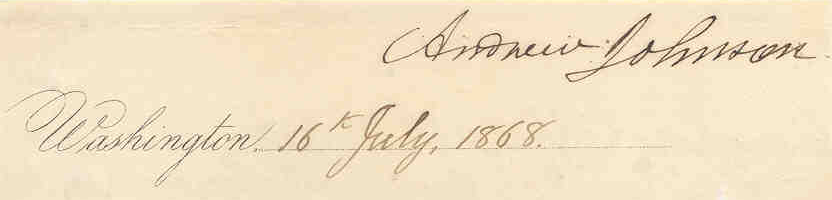 Andrew Johnson
Washington, 16th July, 1868.